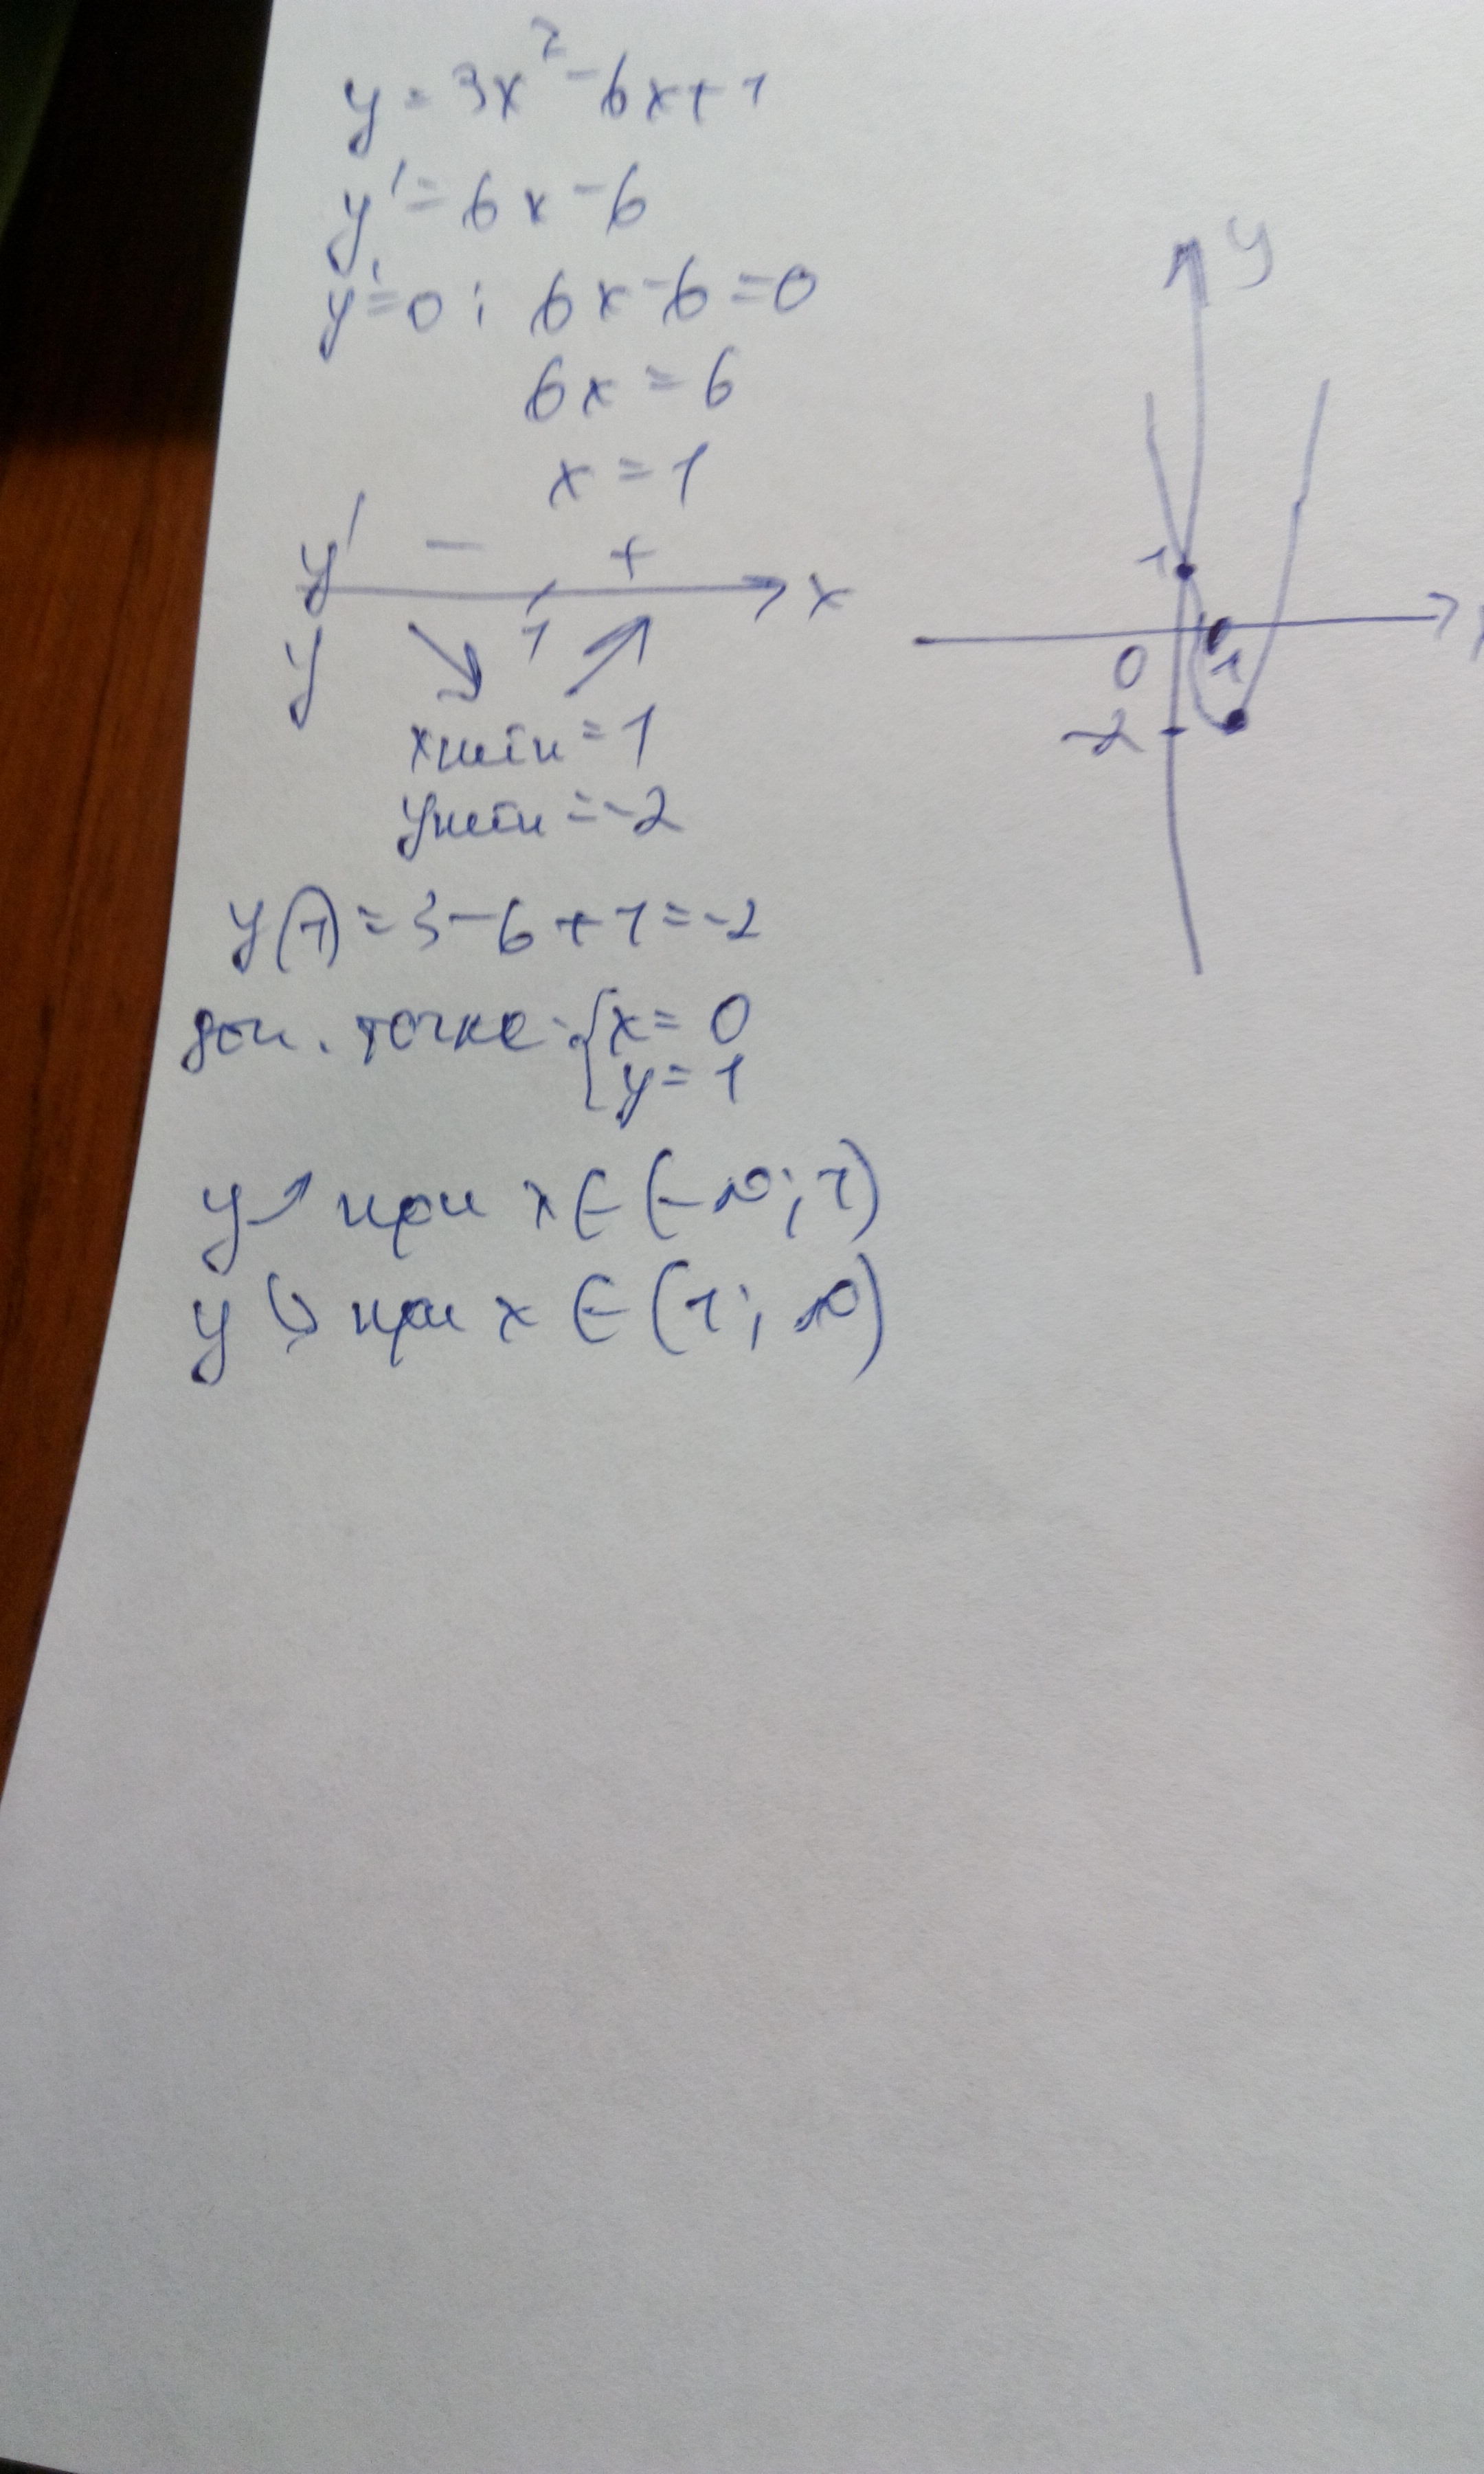 y = 3x² - 6x + 1
y' = 6x - 6
y' = 0 : 6x - 6 = 0
6x = 6
x = 1
y' - + x
y ↘ 1 ↗
xmin = 1
ymin = -2
y(1) = 3 - 6 + 1 = -2
доп. точка: { x = 0
y = 1
y ↗ при x ∈ (-∞; 1)
y ↘ при x ∈ (1; ∞)
y
1
0 1
-2